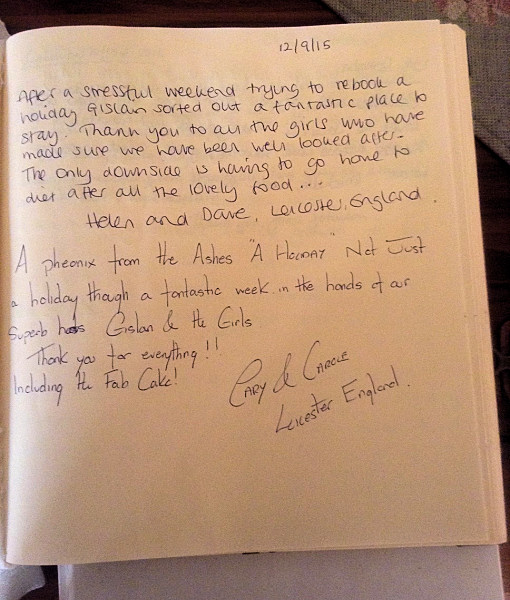 12/9/15
After a stressful weekend trying to rebook a
holiday Gislan sorted out a fantastic place to
stay. Thank you to all the girls who have
made sure we have been well looked after.
The only downside is having to go home to
diet after all the lovely food....
Helen and Dave, Leicester, England.
A pheonix from the Ashes "A Holiday" Not Just
a holiday though a fantastic week in the hands of our
Superb hosts Gislan & the Girls
Thank you for everything!!
Including the Fab Cake!
Gary & Carole
Leicester England.